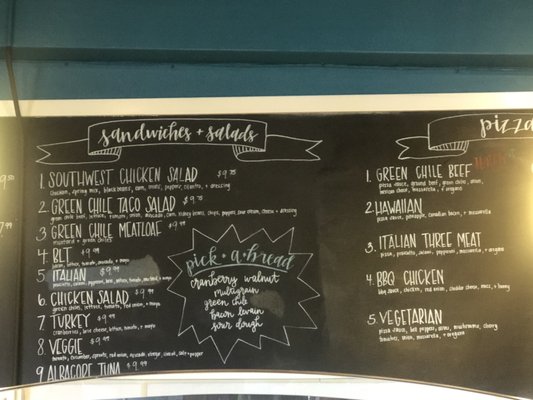 9.50
7.99
sandwiches + salads
1. SOUTHWEST CHICKEN SALAD $9.75
chicken, spring mix, black beans, corn, onions, peppers, cilantro, + dressing
2. GREEN CHILE TACO SALAD $9.75
green chile beef, lettuce, tomato, onion, avocado, corn, kidney beans, chips, peppers, sour cream, cheese + dressing
3. GREEN CHILE MEATLOAF $9.99
mustard + green chiles
4. BLT $9.99
bacon, lettuce, tomato, avocado, + mayo
5. ITALIAN $9.99
6. CHICKEN SALAD $9.99
green chiles, lettuce, tomato, red onion, + mayo
7. TURKEY $9.99
cranberries, brie cheese, lettuce, tomato, + mayo
8. VEGGIE $9.99
tomato, cucumber, sprouts, red onion, avocado, vinegar, salt + pepper
9. ALBACORE TUNA $9.99
pick • a • bread
cranberry walnut
multigrain
green chile
bacon levain
sour dough
pizza
1. GREEN CHILE BEEF
pizza sauce, ground beef, green chiles, onion,
cheese, mozzarella, + oregano
2. HAWAIIAN
pizza sauce, pineapple, canadian bacon, + mozzarella
3. ITALIAN THREE MEAT
pizza, prosciutto, salami, pepperoni, mozzarella, + oregano
4. BBQ CHICKEN
bbq sauce, chicken, red onion, cheddar cheese, mozz, + honey
5. VEGETARIAN
pizza sauce, bell peppers, onion, mushrooms, cherry
tomatoes, mozzarella, + oregano